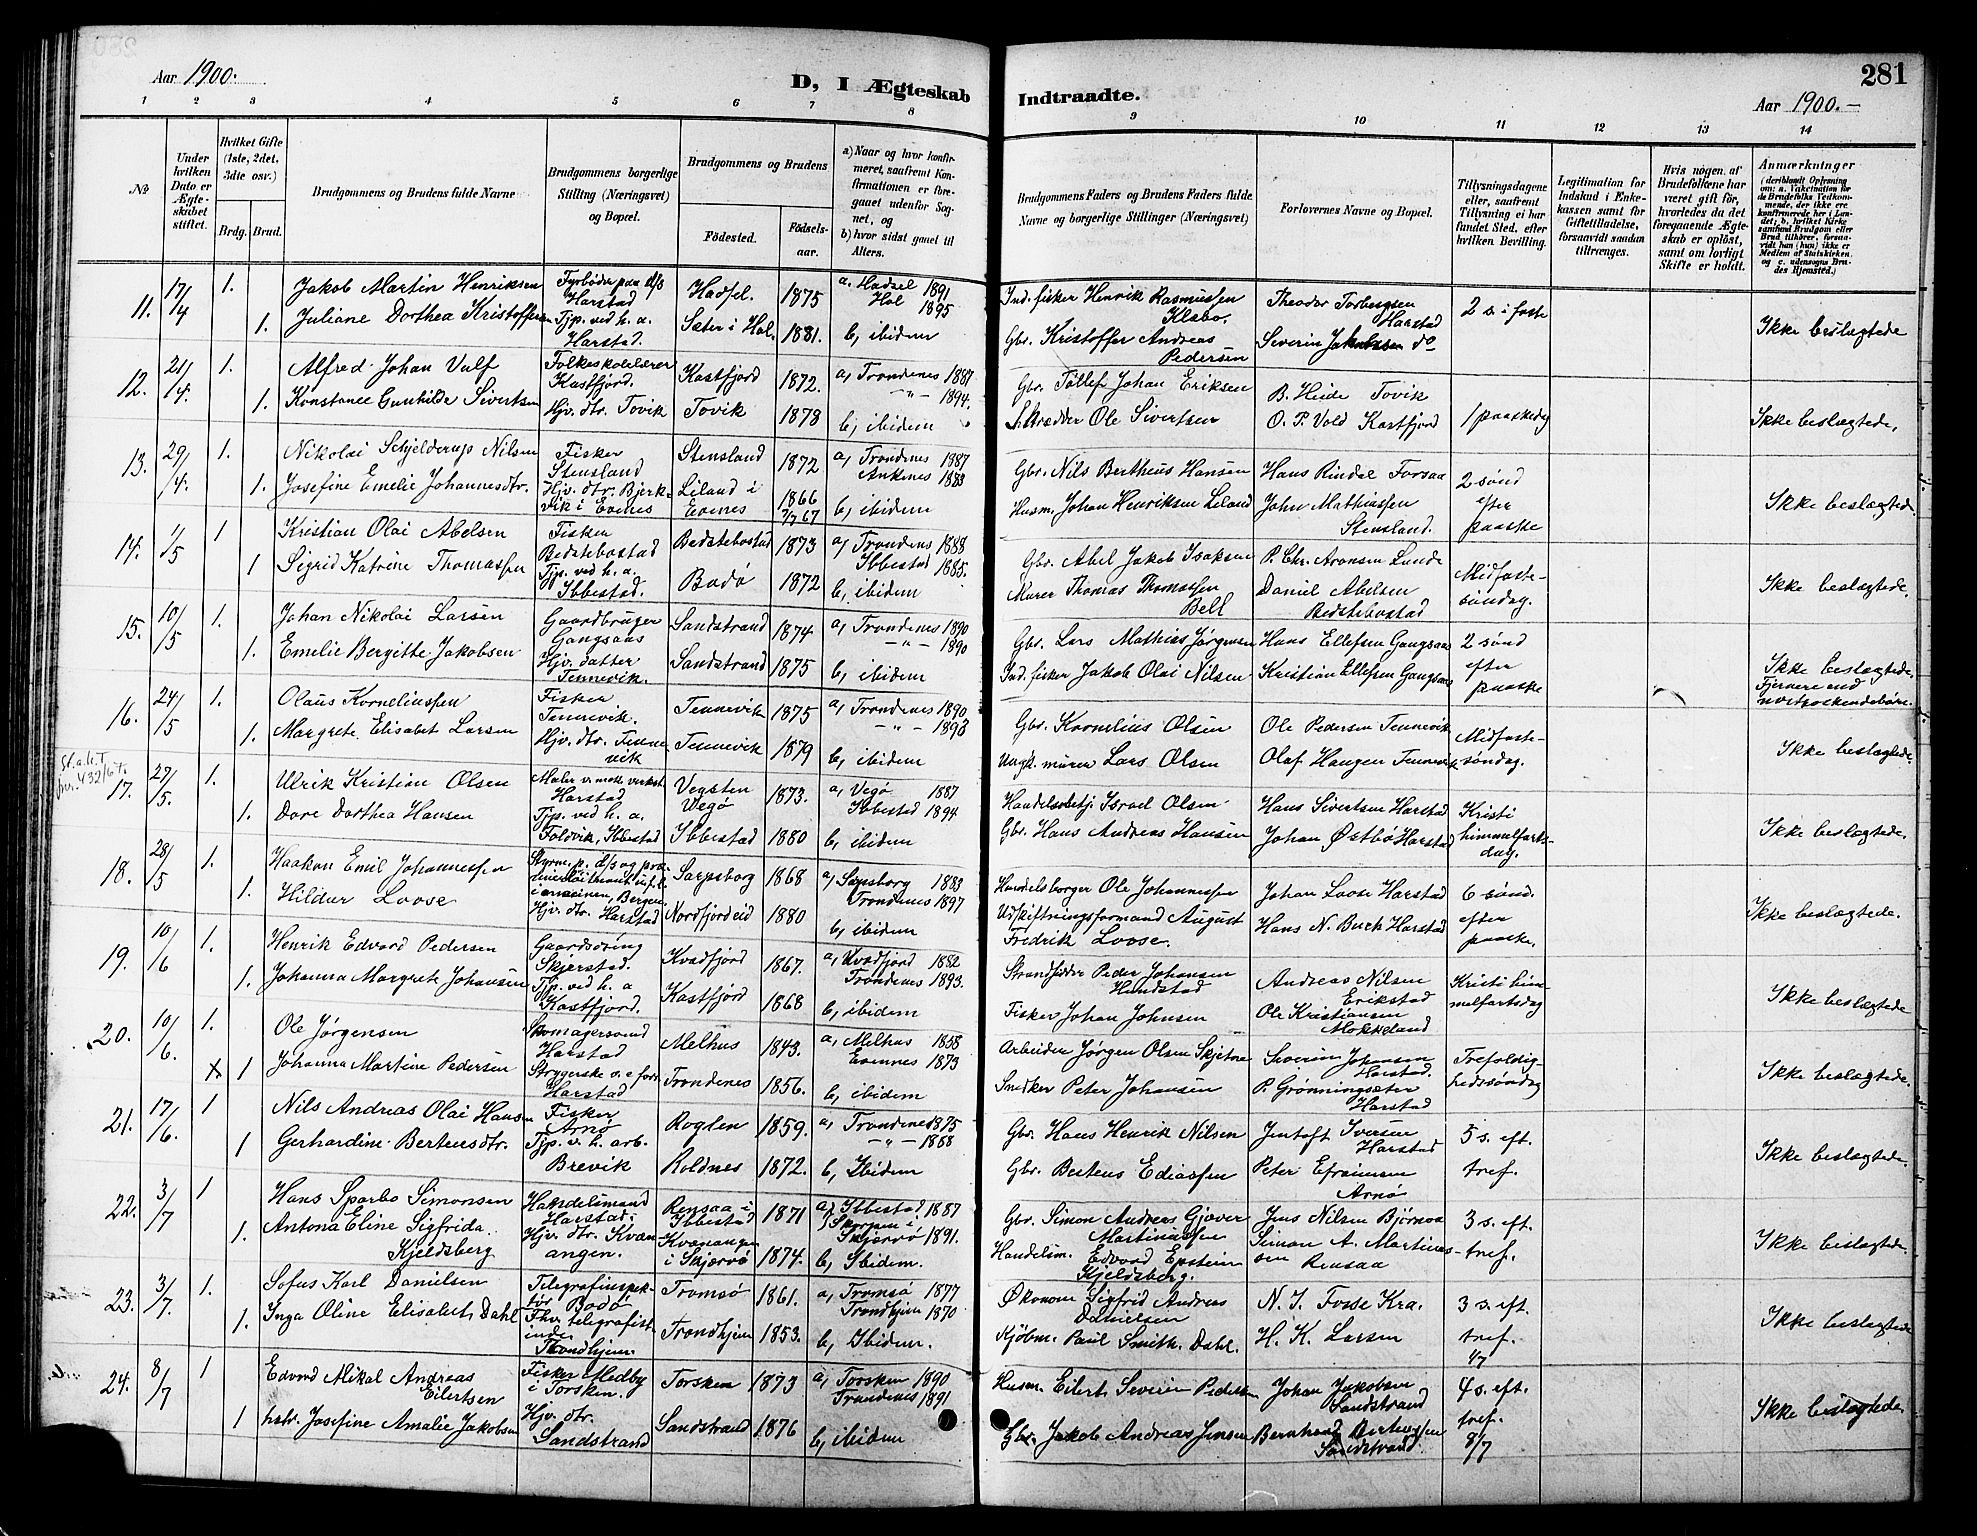 281
Aar 1900.
D, I Ægteskab Indtraadte.
Aar 1900.
1 2 3 4 5 6 7 8 9 10 11 12 13 14
No
Under hvilken Dato er Ægteskabet stiftet.
Hvilket Gifte (1ste, 2det, 3die osv.)
Brdg. Brud.
Brudgommens og Brudens fulde Navne
Brudgommens borgerlige Stilling (Næringsvei) og Bopæl.
Brudgommens og Brudens
Fødested. Fødselsaar.
a) Naar og hvor konfirmeret, saafremt Konfirmationen er foregaaet udenfor Sognet, og
b) hvor sidst gaaet til Alters.
Brudgommens Faders og Brudens Faders fulde Navne og borgerlige Stillinger (Næringsvei)
Forlovernes Navne og Bopæl.
Tillysningsdagene eller, saafremt Tillysning ei har fundet Sted, efter hvilken Bevilling.
Legitimation for Indskud i Enkekassen samt for Giftetilladelse, forsaavidt saadan tiltrænges.
Hvis nogen af Brudefolkene har været gift før, hvorledes da det foregaaende Ægteskab er opløst, samt om lovligt Skifte er holdt.
Anmærkninger
(deriblandt Oplysning om: a. Vakcination for de Brudefolks Vedkommende, der ikke ere konfirmerede her i Landet; b. hvilket Kirkesamfund Brudgom eller Brud tilhører, forsaavidt han (hun) ikke er Medlem af Statskirken, og c. udensogns Brudes Hjemsted.)
11. 17/4 1. Jakob Martin Henriksen Fyrbøder paa d/s Harstad Hadsel. 1875 a. Hadsel 1891 Ind. fisker Henrik Rasmussen Klebo. Theodor Torbergsen Harstad 2 s. i faste
1. Juliane Dorthea Kristoffersen Tjp. ved h. a. Harstad. Sæter i Hol. 1881. Hol 1895 b, ibidem Gbr. Kristoffer Andreas Pedersen Severin Jakobsen do Ikke beslægtede
12. 21/4. 1. Alfred Johan Vulf Folkeskolelærer Kastfjord. Kastfjord 1872. a, Trondenes 1887 Gbr. Tøllef Johan Eriksen B. Heide Tovik 1 paaskedag
1. Konstance Gunhilda Sivertsen Hjv. dtr. Tovik Tovik 1878 -"- 1894. b, ibidem Skrædder Ole Sivertsen O. P. Vold Kastfjord Ikke beslægtede,
13. 29/4. 1. Nikolai Schjelderup Nilsen Fisker Stensland Stensland 1872 a, Trondenes 1887 Gbr. Nils Berthius Hansen Hans Rindal Forsaa 2 sønd efter paaske
1. Josefine Emelie Johannesdtr. Hjv. dtr. Bjerkvik i Evenes Liland i Evenes 1866 7/7 67 Ankenes 1883 b, ibidem Husm. Johan Henriksen Leland John Mathiassen Stensland. Ikke beslægtede
14. 1/5 1 Kristian Olai Abelsen Fisker Bedstebostad Bedstebostad 1873 a, Trondenes 1888 Gbr. Abel Jakob Isaksen P. Chr. Aronsen Lunde Midfastesøndag.
1 Sigrid Katrine Thomassen Tjp. ved h. a. Ibbestad. Bodø 1872 Ibbestad 1885. b, ibidem Murer Thomas Thomassen Bell Daniel Abelsen Bedstebostad Ikke beslægtede,
15. 10/5 1. Johan Nikolai Larsen Gaardbruger Gangsaas Sandstrand 1874 a, Trondenes 1890 Gbr. Lars Mathias Jørgensen Hans Ellefsen Gangsaas 2 sønd efter paaske
1. Emelie Bergitte Jakobsen Hjv. datter Tennevik. Sandstrand 1875 -"- 1890 b, ibidem Ind. fisker Jakob Olai Nilsen Kristian Ellefsen Gangsaas Ikke beslægtede. Fjernere end
16. 24/5 1. Olaus Korneliussen Fisker Tennevik. Tennevik 1875 a, Trondenes 1890 Gbr. Kornelius Olsen Ole Pedersen Tennevik Midfastesøndag.
1. Margrete Elisabet Larsen Hjv. dtr. Tennevik Tennevik 1879 -"- 1893 b, ibidem Ungk. murer Lars Olsen Olaf Haugen Tennevik Ikke beslægtede
17. 27/5. 1. Ulrik Kristian Olsen Maler v. mek. verkst. Harstad Vegsten Vegø 1873. a, Vegø 1887 Handelsbetj. Israel Olsen Hans Sivertsen Harstad Kristi himmelfartsdag.
1. Dore Dorthea Hansen Tjp. ved h. a. Foldvik, Ibbestad Ibbestad 1880 Ibbestad 1894 b, ibidem Gbr. Hans Andreas Hansen Johan Østbø Harstad Ikke beslægtede.
18. 28/5 1. Haakon Emil Johannessen Sarpsborg 1868 a, Sarpsborg 1883 Handelsborger Ole Johannessen Johan Loose Harstad 6 sønd. efter paaske.
1. Hildur Loose Hjv. dtr. Harstad Nordfjordeid 1880 Trondenes 1897 b, ibidem Udskiftningsformand August Fredrik Loose. Hans N. Buch Harstad Ikke beslægtede.
19. 10/6 1. Henrik Edvard Pedersen Gaardsdreng Skjerstad. Kvædfjord 1867. a, Kvædfjord 1882 Strandsidder Peder Johansen Hundstad Andreas Nilsen Erikstad Kristi himmelfartsdag
1. Johanna Margrete Johansen Tjp. ved h. a Kastfjord. Kastfjord 1868 Trondenes 1893. b, ibidem Fisker Johan Johnsen Ole Kristiansen Møkkeland Ikke beslægtede
20. 10/6. 1. Ole Jørgensen Skomagersvend Harstad Melhus 1843. a, Melhus 1858 Arbeider Jørgen Olsen Skjetne Severin Johansen Harstad. Trefoldighedssøndag
x 1 Johanna Martine Pedersen Strygerske Harstad Trondenes 1856. Evenes 1873 b, ibidem Snedker Peter Johansen P. Grønningsæter Harstad Ikke beslægtede.
21. 17/6. 1 Nils Andreas Olai Hansen Fisker Arnø Roglen 1859. a, Trondenes 1875 Gbr. Hans Henrik Nilsen Jentoft Iversen Harstad 5 s. eft. tref.
1 Gerhardine Berteusdtr. Tjp. v. h. arb. Brevik Roldnes 1872. -"- 1888 b, Ibidem Gbr. Berteus Ediassen Peter Efraimsen Arnø Ikke beslægtede.
22. 3/7 1 Hans Sparbo Simonsen Handelsmand Harstad. Rensaa i Ibbestad 1871 a, Ibbestad 1887 Gbr. Simon Andreas Gjøver Martinussen Jens Nilsen Bjørnaa 3 s. eft. tref.
1. Antona Eline Sigfrida Kjeldsberg Hjv. dtr. Kvænangen. Kvænangen i Skjærvø 1874. Skjærvø 1891. b, Ibidem. Handelsm. Edvard Epstein Kjeldsberg. Simon A. Martinussen Rensaa Ikke beslægtede.
23. 3/7. 1. Sofus Karl Danielsen Telegrafinspektør Bodø Tromsø 1861. a, Tromsø 1877 Økonom Sigfrid Andreas Danielsen N. J. Fosse Kra. 3 s. eft. tref.
1. Inga Oline Elisabet Dahl Fhv. telegrafistinde Trondhjem. Trondhjem 1853. Trondhjem 1870 b, Ibidem. Kjøbm. Paul Smith Dahl. H. K. Larsen Ikke beslægtede
24. 8/7 1 Edvard Mikal Andreas Eilertsen Fisker Medby i Torsken. Torsken 1873 a, Torsken 1890 Husm. Eilert Severin Pedersen Johan Jakobsen Sandstrand 4 s. eft. tref. 8/7
1 Josefine Amalie Jakobsen Hjv. dtr. Sandstrand Sandstrand 1876 Trondenes 1891 b, ibidem Gbr. Jakob Andreas Jensen Bernhard Bertheussen Sandstrand Ikke beslægtede.